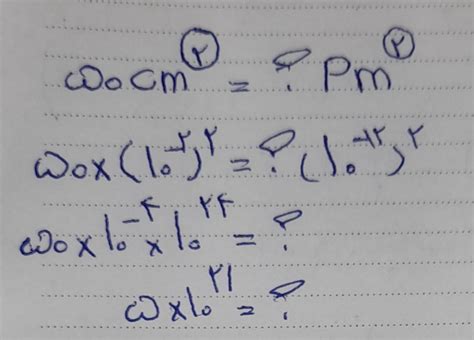 ۵۰cm^۲ = ? Pm^۲
۵۰×(۱۰^-۲)^۲ = ? (۱۰^-۱۲)^۲
۵۰×۱۰^-۴×۱۰^۲۴ = ?
۵×۱۰^۲۱ = ?